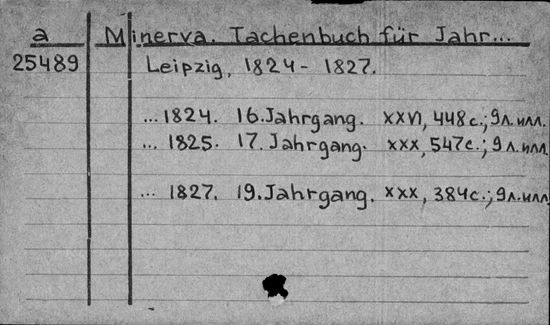 a Minerva. Tachenbuch für Jahr...
25489 Leipzig, 1824 - 1827.
... 1824. 16. Jahrgang. XXVI, 448 с.; 9 л. илл.
... 1825. 17. Jahrgang. XXX, 547 с.; 9 л. илл.
... 1827. 19. Jahrgang. XXX, 384 с.; 9 л. илл.